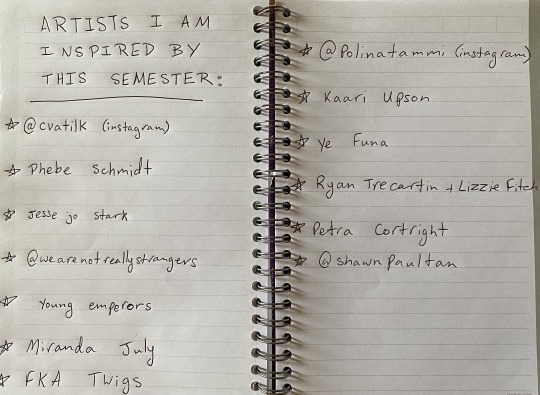 ARTISTS I AM
INSPIRED BY
THIS SEMESTER:
☆ @cvatilk (instagram)
☆ Phebe Schmidt
☆ Jesse jo stark
☆ @wearenotreallystrangers
☆ Young emperors
☆ Miranda July
☆ FKA Twigs
☆ @Polinatammi (instagram)
☆ Kaari Upson
☆ Ye Funa
☆ Ryan Trecartin + Lizzie Fitch
☆ Petra Cortright
☆ @shawnpaultan